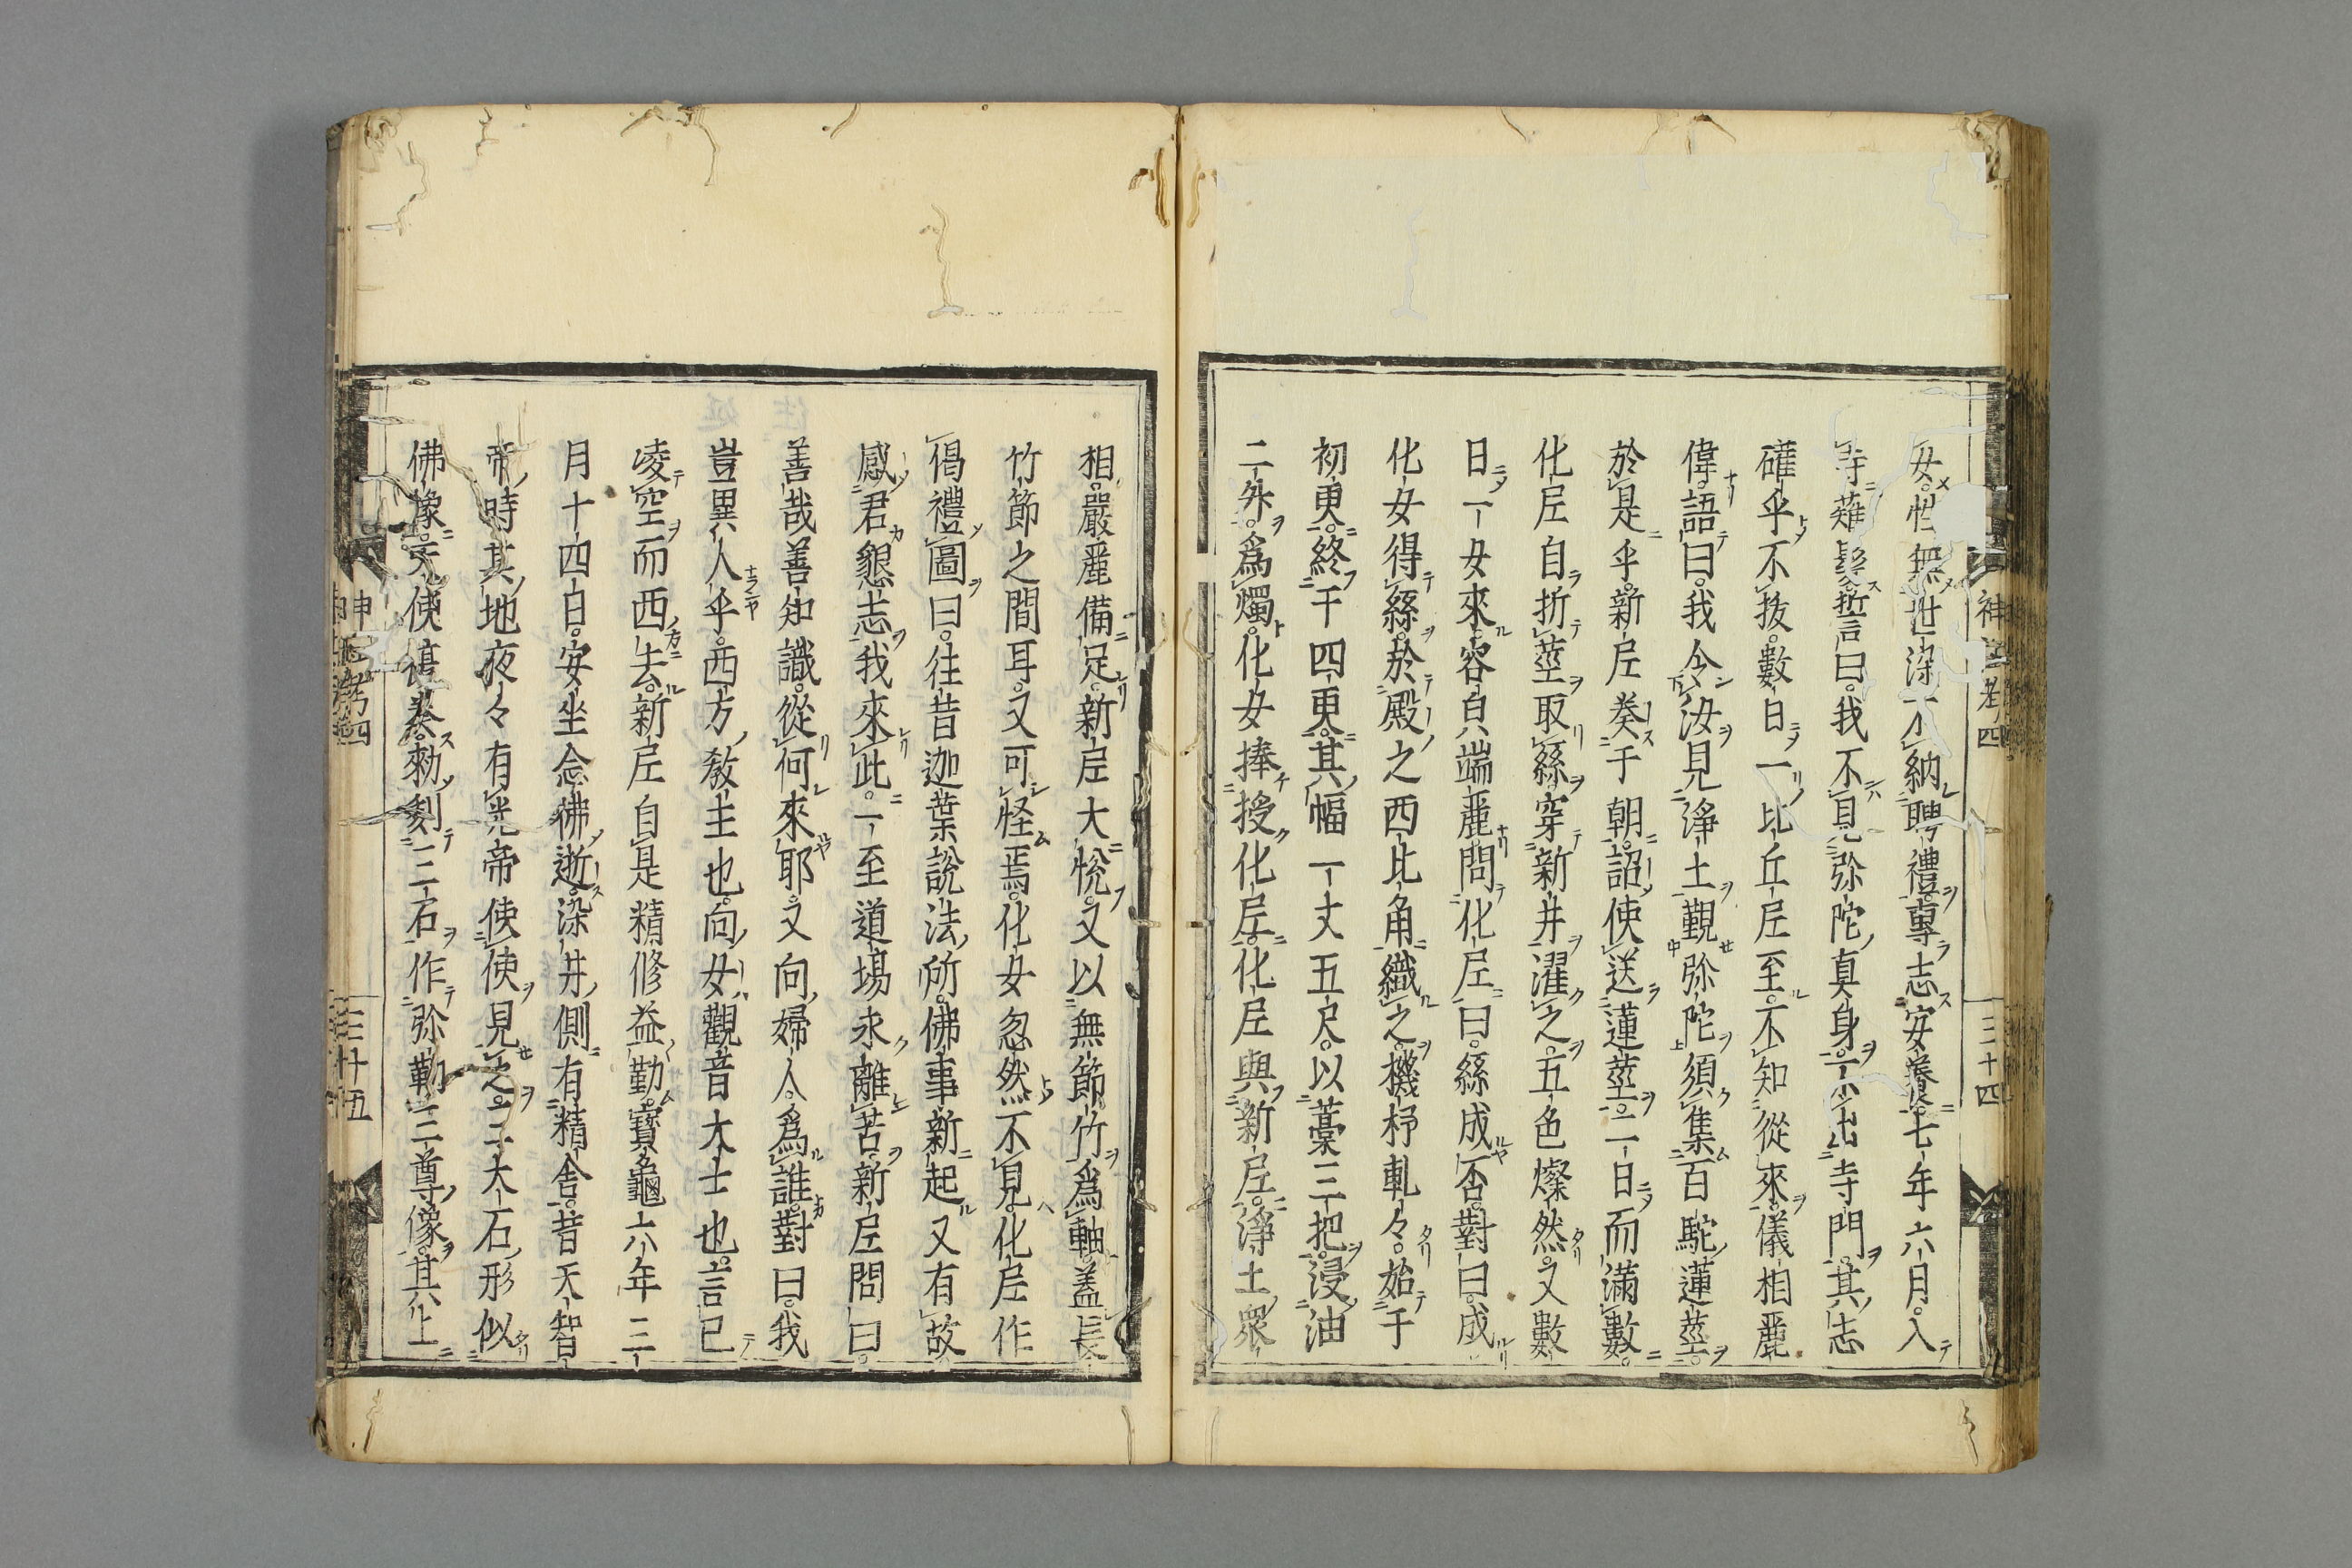 女性無世染不納聘禮專志安養七年六月入
寺薙髮誓言曰我不見弥陀真身不出寺門其志
確乎不拔數日一比丘尼至不知從來儀相麗
偉語曰我令汝見淨土覲弥陀須集百駝蓮莖
於是乎新尼奏于朝詔使送蓮莖二日而滿數
化尼自折莖取絲穿新井濯之五色燦然又數
日一女來容皃端麗問化尼曰絲成否對曰成
化女得絲於殿之西比角織之機杼軋々始于
初更終于四更其幅一丈五尺以藁三把浸油
二舛爲燭化女捧授化尼化尼與新尼淨土衆
神社考四
三十四
相嚴麗備足新尼大悅又以無節竹爲軸蓋長
竹節之間耳又可怪焉化女忽然不見化尼作
偈禮圖曰往昔迦葉說法所佛事新起又有故
感君懇志我來此一至道場永離苦新尼問曰
善哉善知識從何來耶又向婦人爲誰對曰我
豈異人乎西方教主也向女觀音大士也言已
凌空而西去新尼自是精修益勤寶龜六年三
月十四日安坐念佛逝染井側有精舍昔天智
帝時其地夜々有光帝使使見之三大石形似
佛像天使還奏勅刻三石作弥勒三尊像其上
神社考四
三十五